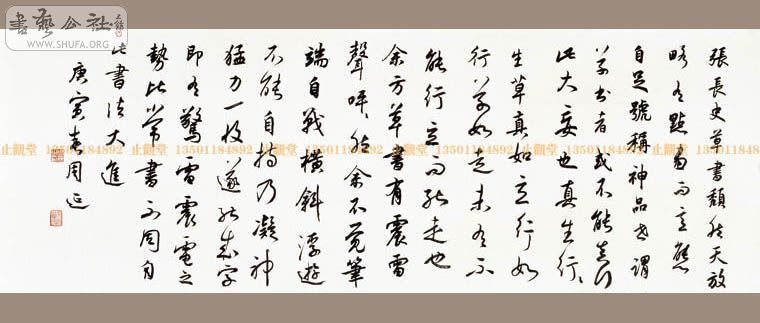 張長史草書頹然天放
略有點畫而意態
自足號稱神品世謂
草書者或不能真行
此大妄也真生行
生草真如立行如
行草如走未有不
能行立而能走也
余方草書有震雷
聲呯然余不覺筆
端自戰橫斜浮遊
不能自持乃凝神
猛力一投遂能成字
即有驚雷震電之
勢比常書不同自
此書法大進
庚寅春周延
書藝公社
WWW.SHUFA.ORG
止觀堂 13501184892 止觀堂 13501184892 止觀堂 13501184892 止觀堂 13501184892